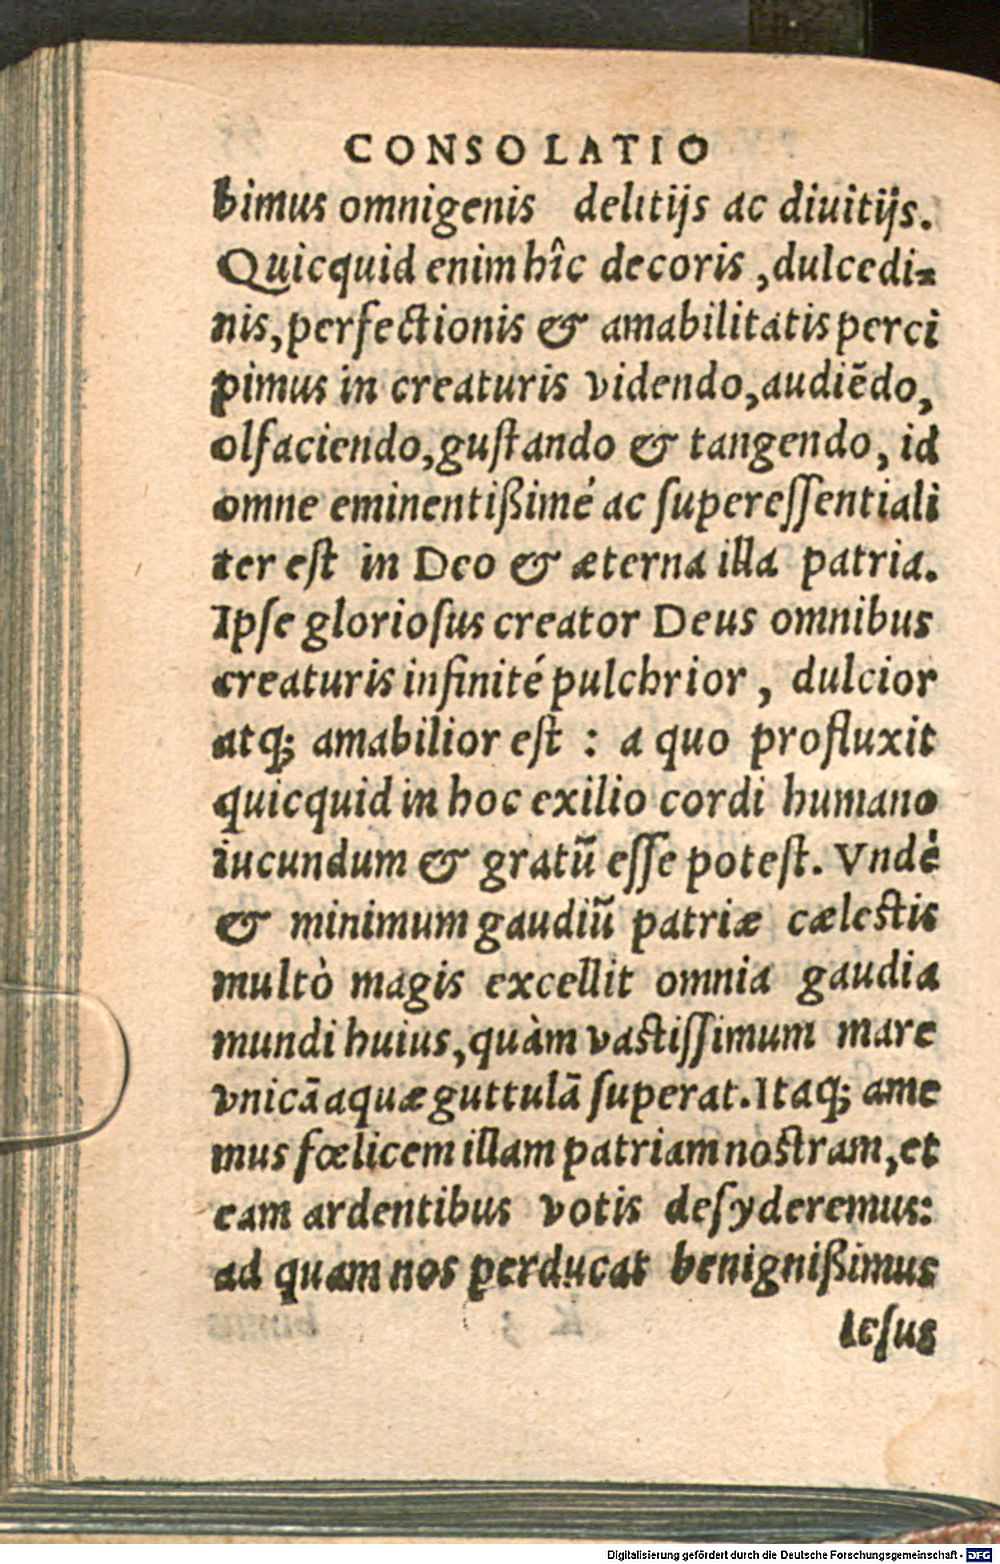 CONSOLATIO
bimus omnigenis delitijs ac diuitijs.
Quicquid enim hîc decoris, dulcedi-
nis, perfectionis & amabilitatis perci
pimus in creaturis videndo, audiẽdo,
olfaciendo, gustando & tangendo, id
omne eminentißimé ac superessentiali
ter est in Deo & æterna illa patria.
Ipse gloriosus creator Deus omnibus
creaturis infinité pulchrior, dulcior
atq; amabilior est : a quo profluxit
quicquid in hoc exilio cordi humano
iucundum & gratũ esse potest. Vndè
& minimum gaudiũ patriæ cælestis
multò magis excellit omnia gaudia
mundi huius, quàm vastissimum mare
vnicã aquæ guttulã superat. Itaq; ame
mus fœlicem illam patriam nostram, et
eam ardentibus votis desyderemus:
ad quam nos perducat benignißimus
Iesus
Digitalisierung gefördert durch die Deutsche Forschungsgemeinschaft - DFG